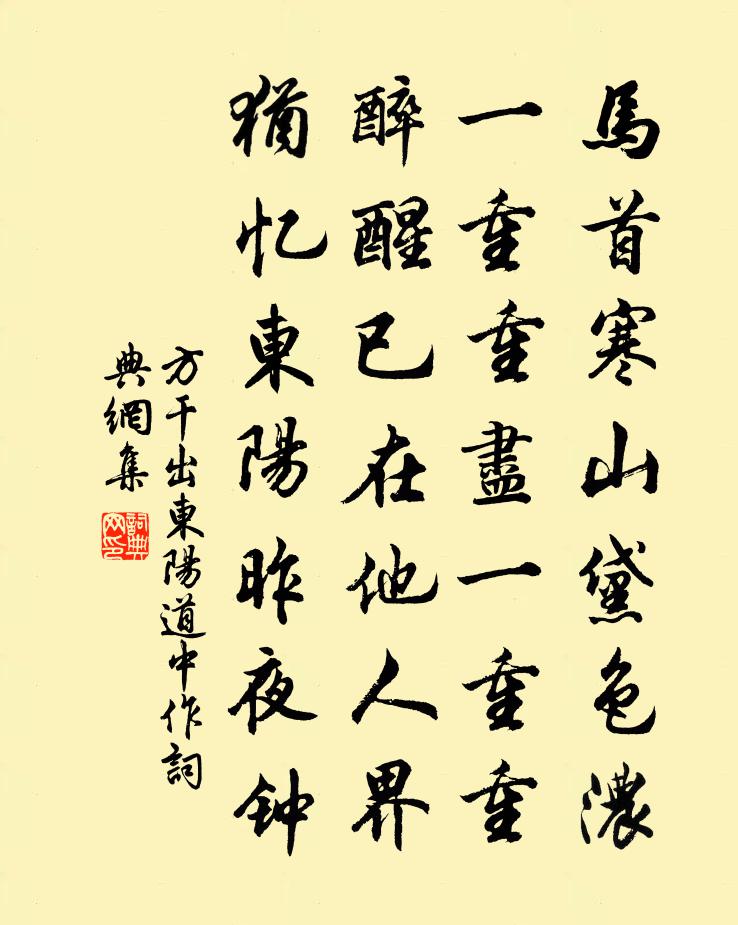 馬首寒山黛色濃
一重重盡一重重
醉醒已在他人界
猶忆東陽昨夜钟
方干出東陽道中作詞
典網集
詞典
网印